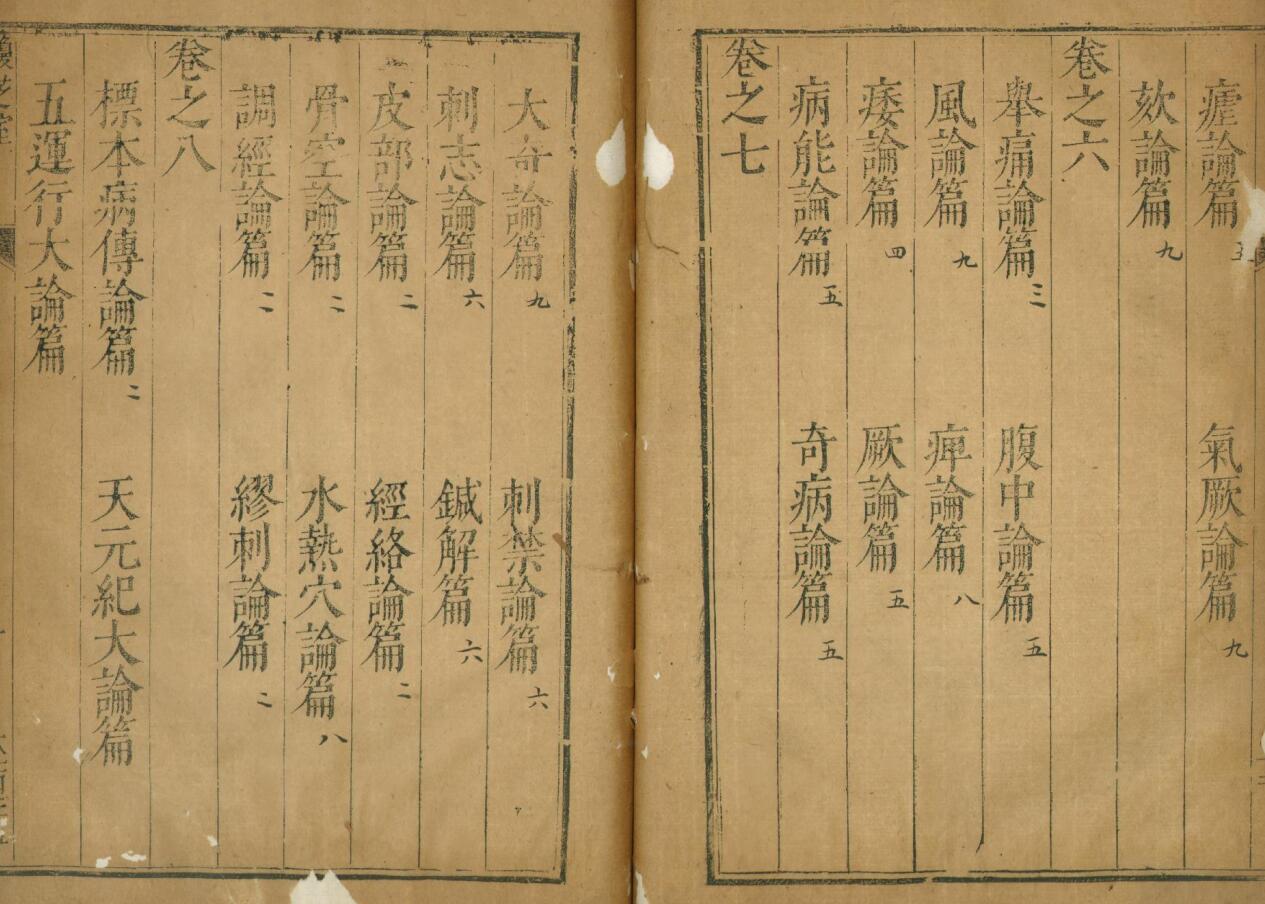 瘧論篇五　氣厥論篇九
欬論篇九
卷之六
舉痛論篇三　腹中論篇五
風論篇九　痺論篇八
痿論篇四　厥論篇五
病能論篇五　奇病論篇五
卷之七
大奇論篇九　刺禁論篇六
刺志論篇六　鍼解篇六
皮部論篇二　經絡論篇二
骨空論篇二　水熱穴論篇八
調經論篇二　繆刺論篇二
卷之八
標本病傳論篇二　天元紀大論篇
五運行大論篇